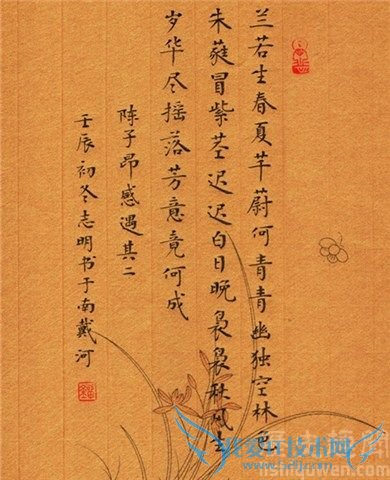 兰若生春夏芊蔚何青青幽独空林色
朱蕤冒紫茎迟迟白日晚袅袅秋风生
岁华尽摇落芳意竟何成
陈子昂感遇其二
壬辰初冬志明书于南戴河
我爱IT技术网
lishiquwen.com